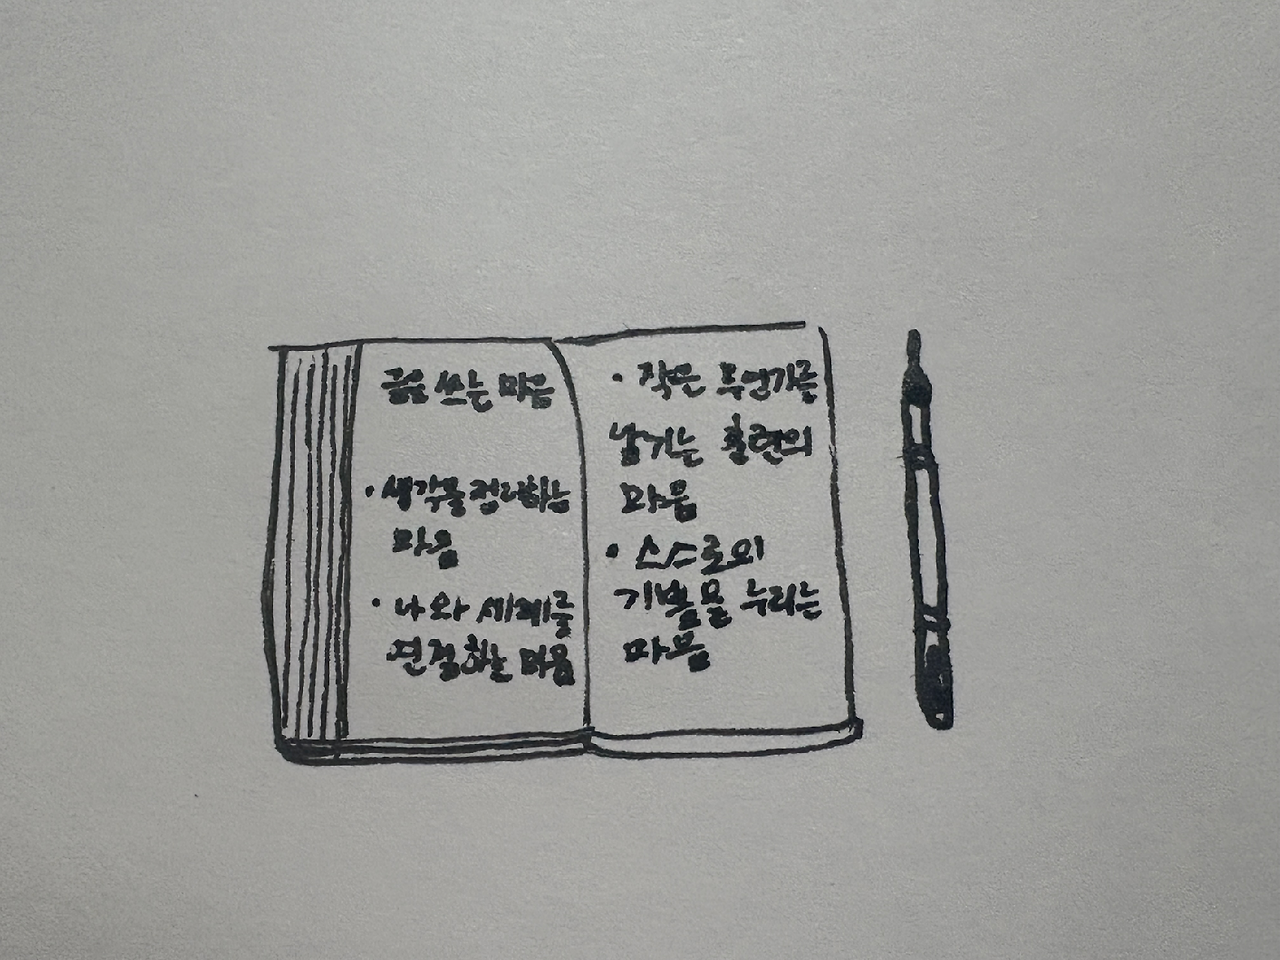 글을 쓰는 마음
· 생각을 정리하는
마음
· 나와 세계를
연결하는 마음
· 작은
남기는 훈련의
마음
· 스스로의
기쁨을 누리는
마음